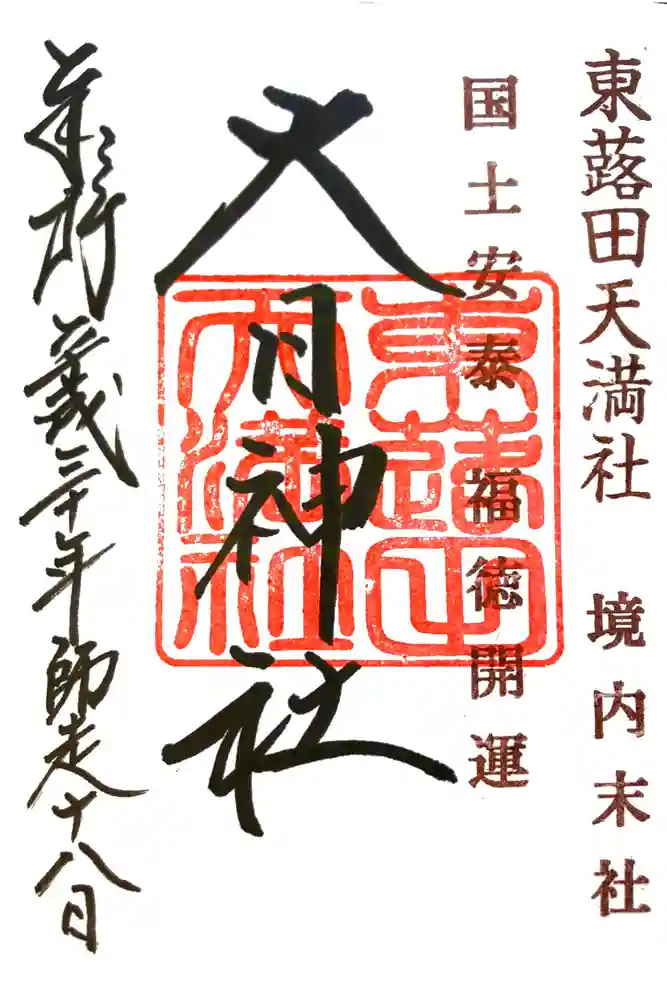 東蕗田天満社 境内末社
国土安泰 福徳開運
大日神社
東蕗田
天満社
三十年師走十八日